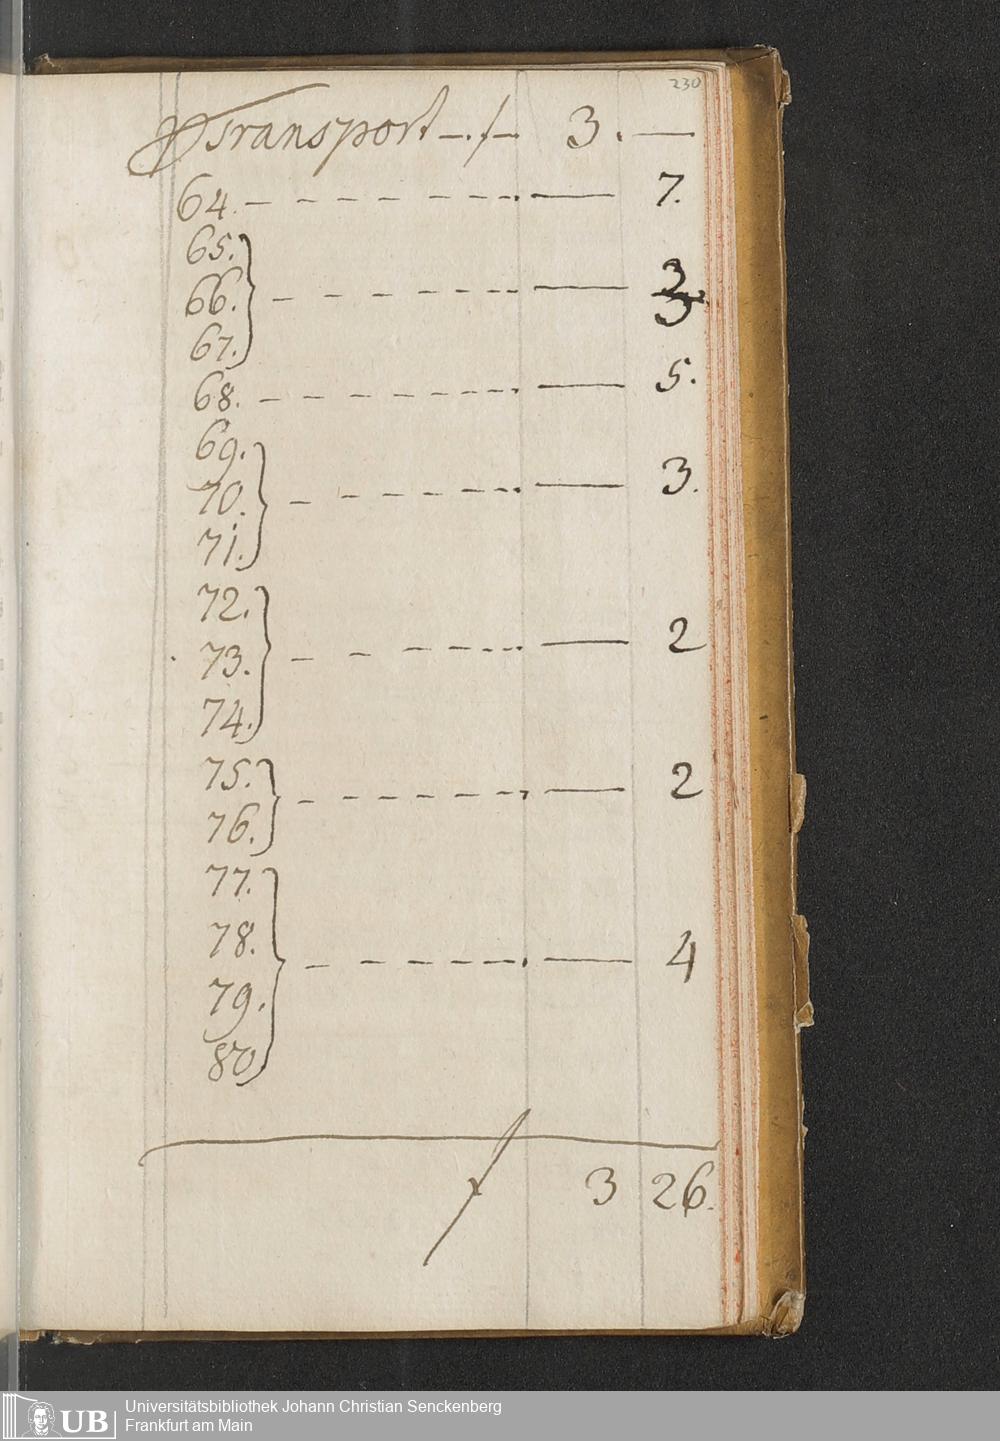 230
Transport — . f — 3 . —
64. — — — — — — — . — 7.
65.
66. — — — — — — — . — 3
67.
68. — — — — — — — . — 5.
69.
70. — — — — — — . — 3.
71.
72.
73. — — — — — . — 2
74.
75.
76. — — — — — — . — 2
77.
78. — — — — — — . — 4
79.
80
f 3 26.
UB
Universitätsbibliothek Johann Christian Senckenberg
Frankfurt am Main